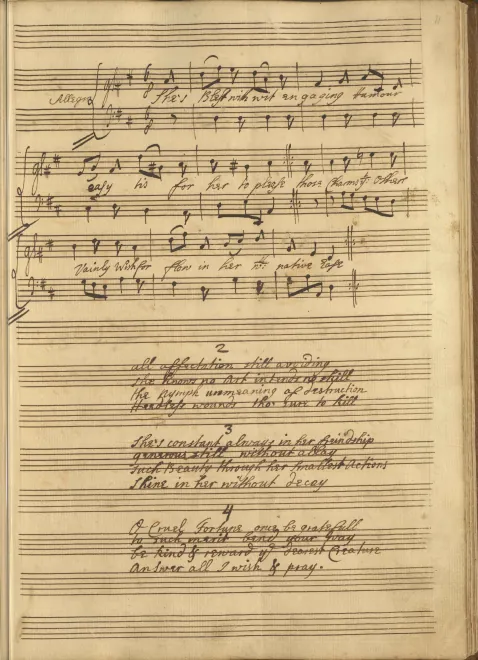 11
Allegro
6 8
She's Blest with wit engaging Humour
6 8
easy tis for her to please those Charms yt Others
Vainly Wish for flow in her wth native Ease
2
all affectation still avoiding
she knows no Art intends no skill
the Nymph unmeaning of destruction
Heedless wounds tho: sure to kill
3
She's constant always in her friendship
generous still without allay
Such Beauty through her smallest Actions
Shine in her without decay
4
O Cruel Fortune once be gratefull
to such merit bend your way
be kind & reward ye dearest Creature
Answer all I wish & pray.